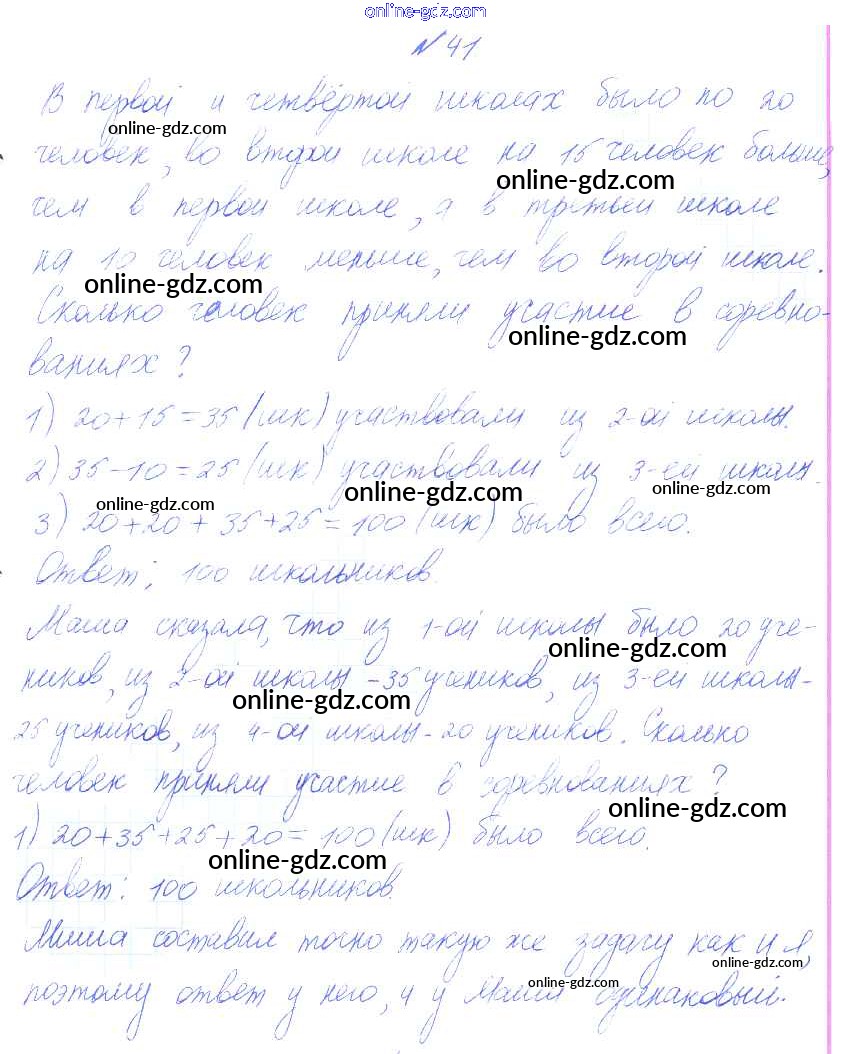 online-gdz.com
№ 41
В первой и четвёртой школах было по 20
online-gdz.com
человек, во второй школе на 15 человек больше,
online-gdz.com
чем в первой школе, а в третьей школе
на 10 человек меньше, чем во второй школе.
online-gdz.com
Сколько человек приняли участие в соревно-
online-gdz.com
ваниях?
1) 20+15=35 (шк) участвовали из 2-ой школы.
2) 35-10=25 (шк) участвовали из 3-ей школы.
online-gdz.com
online-gdz.com
online-gdz.com
3) 20+20+35+25=100 (шк) было всего.
Ответ: 100 школьников.
Маша сказала, что из 1-ой школы было 20 уче-
online-gdz.com
ников, из 2-ой школы -35 учеников, из 3-ей школы-
online-gdz.com
25 учеников, из 4-ой школы-20 учеников. Сколько
человек приняли участие в соревнованиях?
online-gdz.com
1) 20+35+25+20=100 (шк) было всего.
online-gdz.com
Ответ: 100 школьников.
Миша составил точно такую же задачу как и я,
online-gdz.com
поэтому ответ у него, и у Маши одинаковый.
online-gdz.com